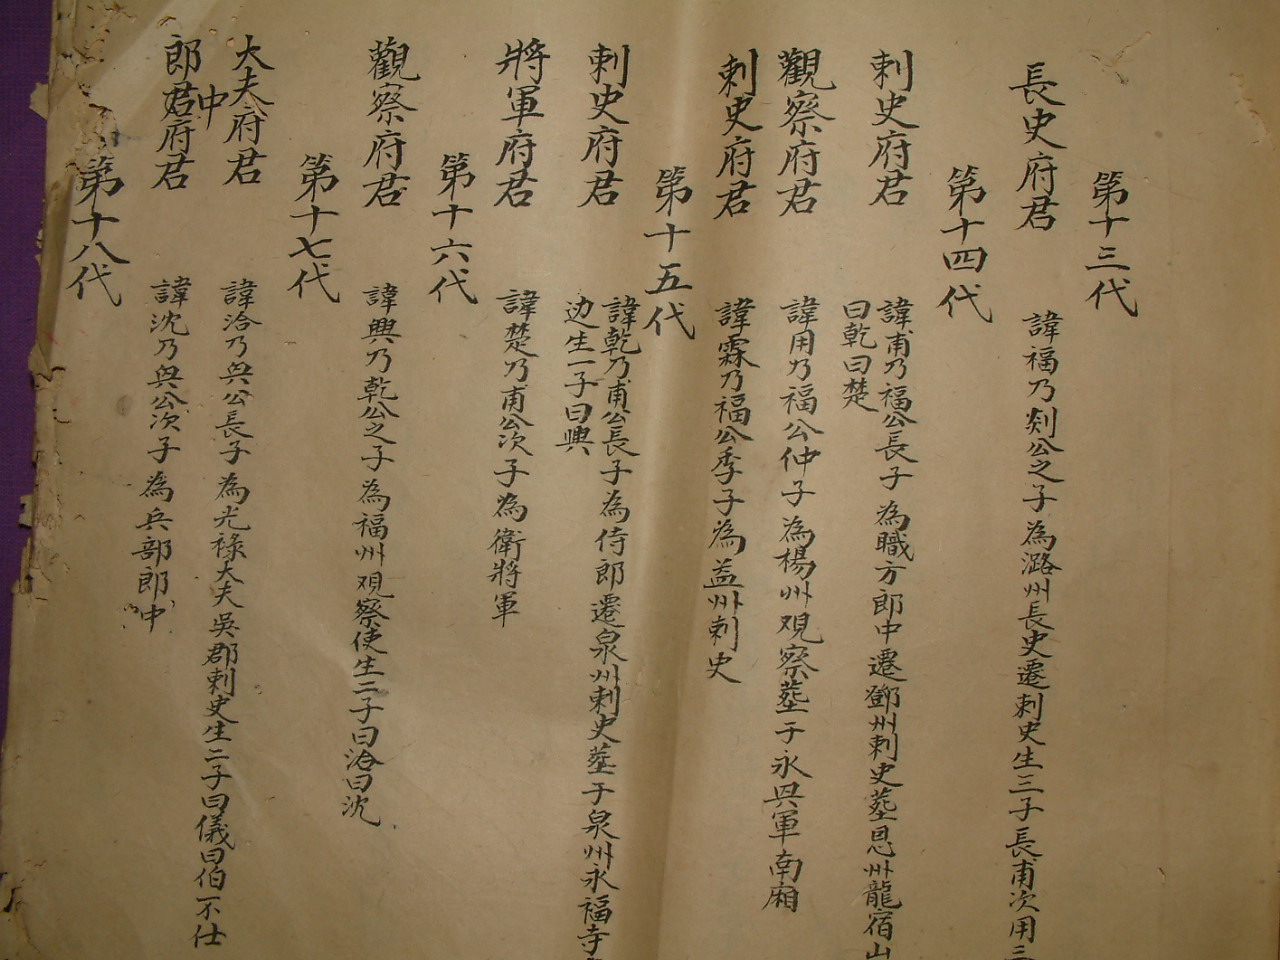 第十三代
長史府君
諱福乃剡公之子為潞州長史遷刺史生三子長甫次用三
第十四代
刺史府君
諱甫乃福公長子為職方郎中遷鄧州刺史塟恩州龍宿山
曰乾曰楚
觀察府君
諱用乃福公仲子為楊州观察塟于永興軍南廂
刺史府君
諱霖乃福公季子為益州刺史
第十五代
刺史府君
諱乾乃甫公長子為侍郎遷泉州刺史塟于泉州永福寺
边生一子曰興
將軍府君
諱楚乃甫公次子為衛將軍
第十六代
觀察府君
諱興乃乾公之子為福州观察使生二子曰洽曰沈
第十七代
大夫府君
諱洽乃興公長子為光祿大夫吳郡刺史生二子曰儀曰伯一不仕
郎中府君
諱沈乃興公次子為兵部郎中
第十八代